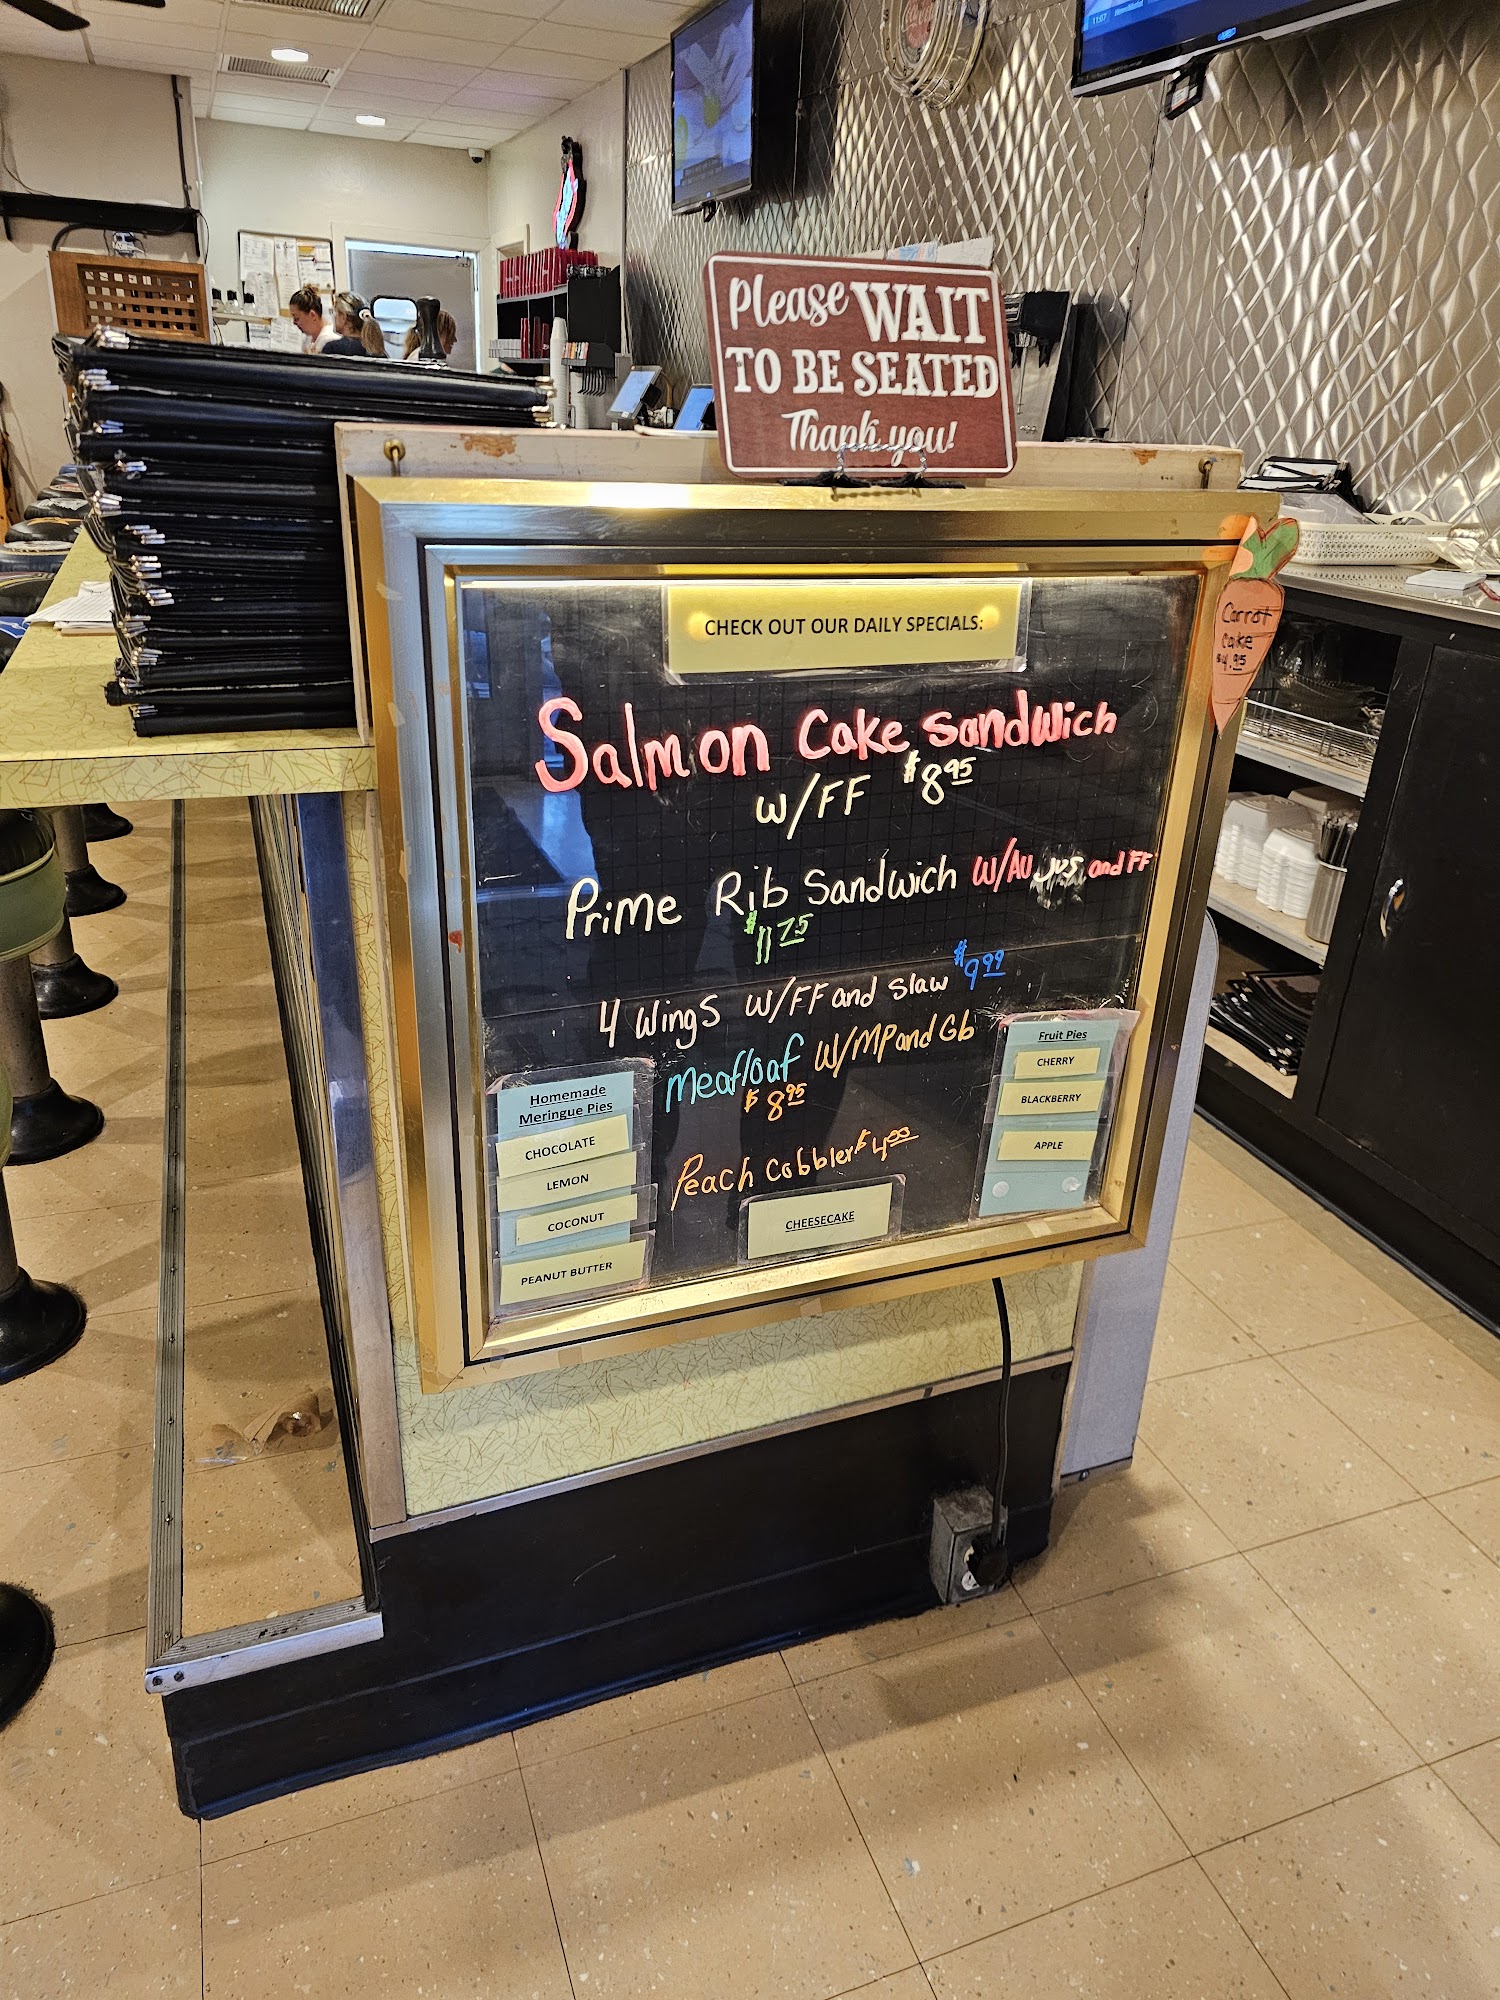 Please WAIT
TO BE SEATED
Thank you!
CHECK OUT OUR DAILY SPECIALS:
Salmon Cake Sandwich
W/FF $8.95
Prime Rib Sandwich W/Au Jus and FF
$11.75
4 Wings W/FF and Slaw $9.99
Meatloaf W/MP and Gb
$8.95
Peach Cobbler $4.00
CHEESECAKE
Homemade
Meringue Pies
CHOCOLATE
LEMON
COCONUT
PEANUT BUTTER
Fruit Pies
CHERRY
BLACKBERRY
APPLE
Carrot
Cake
$4.95
11:07